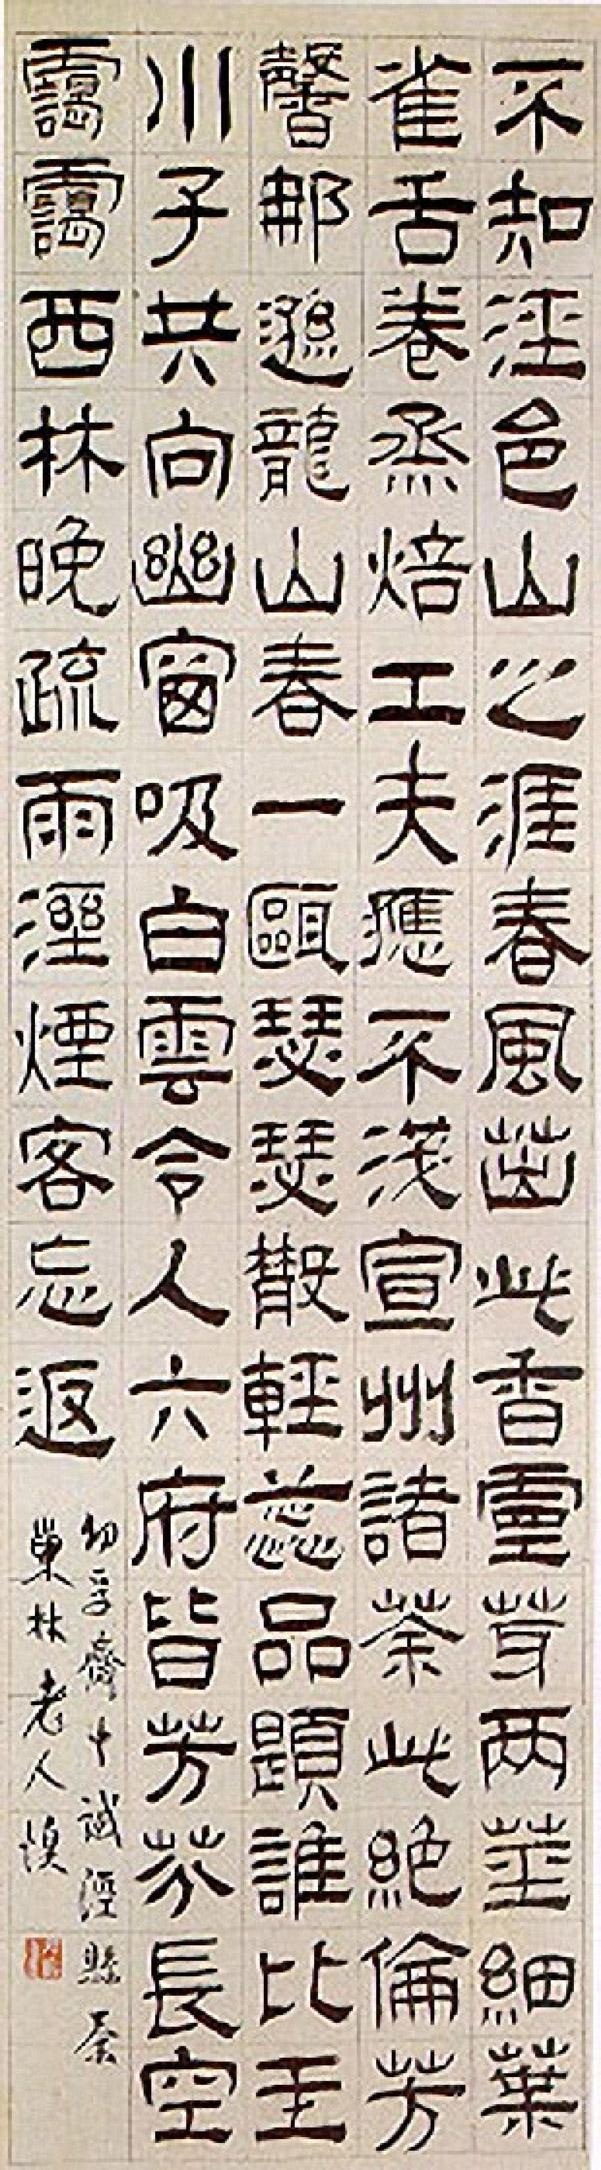 不知涇邑山之涯春風茁此香靈芽两莖細葉
雀舌卷烝焙工夫應不淺宣州諸茶此絕倫芳
馨那遜龍山春一甌瑟瑟散輕蕊品題誰比玉
川子共向幽窗吸白雲令人六府皆芳芬長空
靄靄西林晚疏雨溼煙客忘返
幼孚齋中試涇縣茶
巢林老人慎